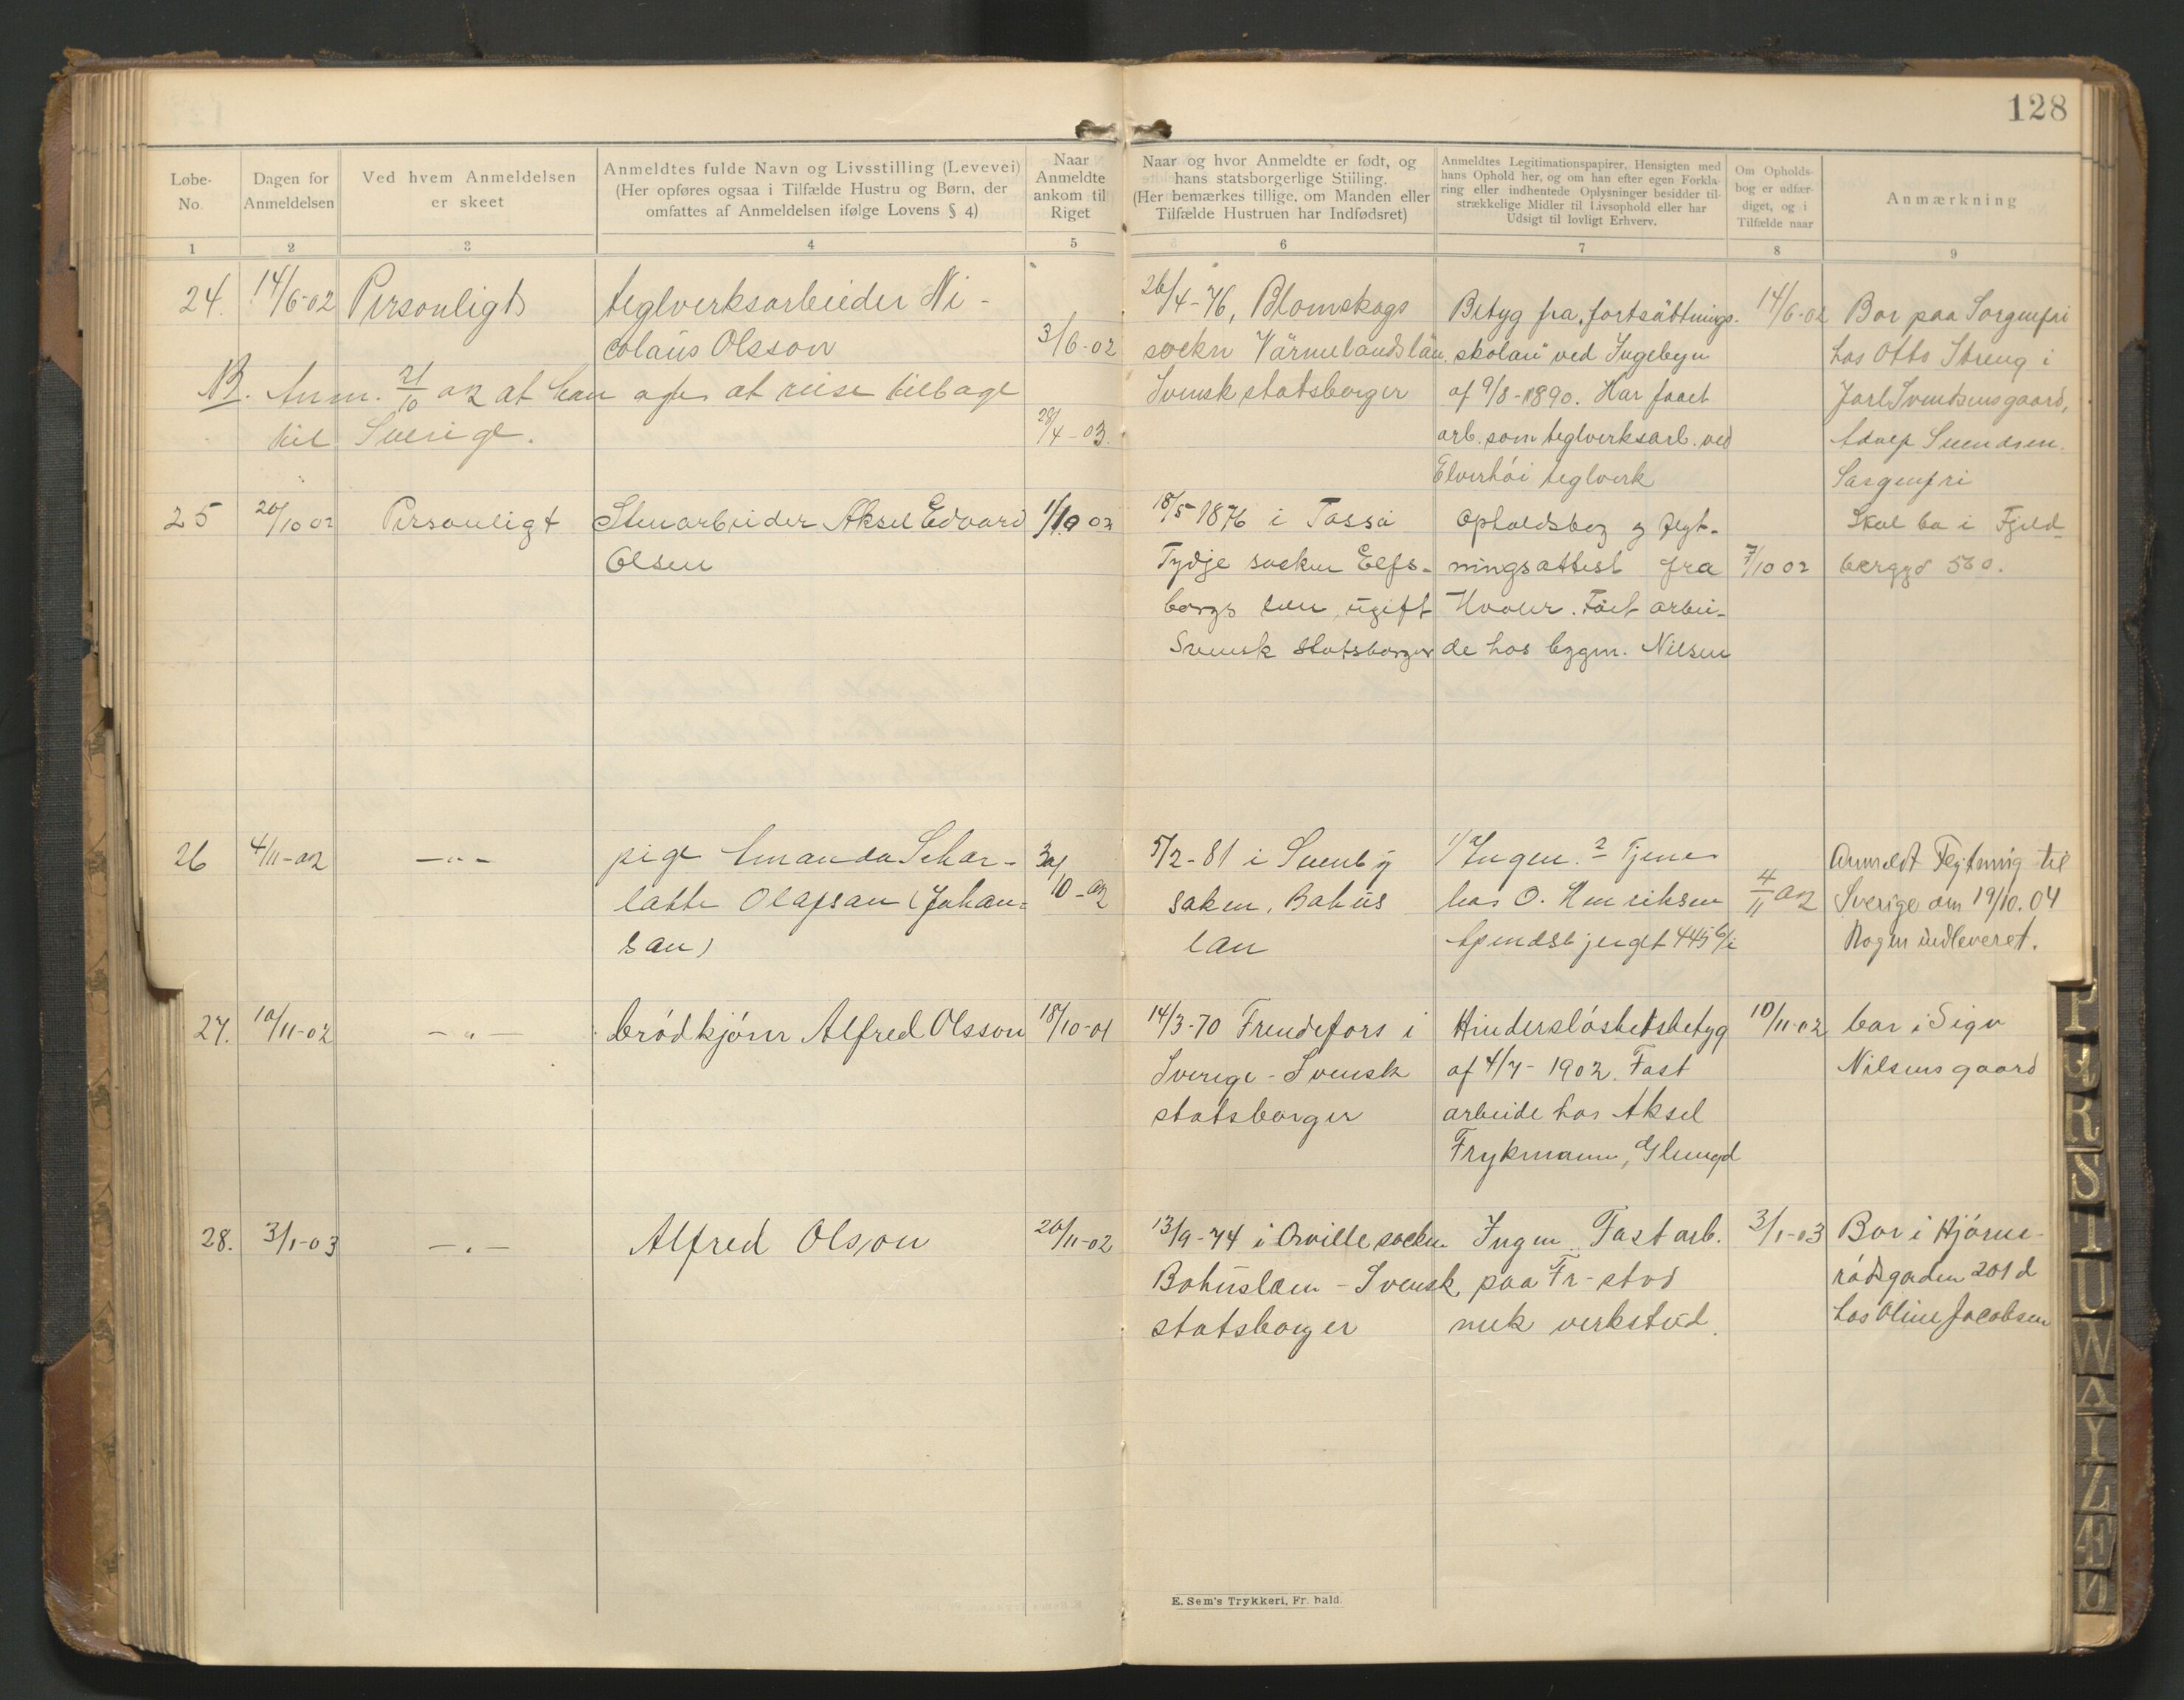 128
Løbe-
No.
Dagen for
Anmeldelsen
Ved hvem Anmeldelsen
er skeet
Anmeldtes fulde Navn og Livsstilling (Levevei)
(Her opføres ogsaa i Tilfælde Hustru og Børn, der
omfattes af Anmeldelsen ifølge Lovens § 4)
Naar
Anmeldte
ankom til
Riget
Naar og hvor Anmeldte er født, og
hans statsborgerlige Stilling.
(Her bemærkes tillige, om Manden eller
Tilfælde Hustruen har Indfødsret)
Anmeldtes Legitimationspapirer, Hensigten med
hans Ophold her, og om han efter egen Forkla-
ring eller indhentede Oplysninger besidder til-
strækkelige Midler til Livsophold eller har
Udsigt til lovligt Erhverv.
Om Opholds-
bog er udfær-
diget, og i
Tilfælde naar
Anmærkning
1 2 3 4 5 6 7 8 9
24.
14/6-02
Personligt
teglverksarbeider Ni-
colaus Olsson
3/6-02
NB. Anm. 21/10 02 at han agter at reise tilbage
til Sverige.
28/4-03.
26/4-76, Blomskogs
sockn Värmelandslän.
Svensk statsborger
Betyg fra "fortsättnings-
skolan" ved Ingebyn
af 9/8-1890. Har faaet
arb. som teglverksarb. ved
Elverhöi teglverk
14/6-02
Bor paa Sorgenfri
hos Otto Streng i
Jarl Svendsensgaard,
Adolf Svendsen.
Sorgenfri
25
20/10 02
Personligt
Stenarbeider Aksel Edvard
Olsen
1/10 02
18/5-1876 i Tössö
Tydje socken Elfs-
borgs len, ugift
Svensk statsborger
Opholdsbog og flyt-
ningsattest fra
Hvaler. Fået arbei-
de hos bygm. Nilsen
7/10 02
Skal bo i Fjeld-
berggd 560.
26
4/11-02
—"—
pige Amanda Schar-
lotte Olafson (Johan=
son)
30/10-02
5/2-81 i Svenby
soken, Bohus
län
1/ Ingen. 2 Tjener
hos O. Henriksen
445 b/i
4/11 02
Anmeldt Flytning til
Sverige den 19/10.04
Bogen indleveret.
27.
10/11-02
—"—
brödkjörer Alfred Olsson
18/10-01
14/3-70 Frendefors i
Sverige - Svensk
statsborger
Hinderslöshetsbetyg
af 4/7-1902. Fast
arbeide hos Aksel
Frykmann, Glemgd
10/11-02
bor i Sigv
Nilsensgaard
28.
3/1-03
—"—
Alfred Olsson
20/11-02
13/9-74 i Qville socken
Bohuslæn - Svensk
statsborger
Ingen. Fast arb.
paa Fr-stad
mek verksted.
3/1-03
Bor i Hjörne-
rödsgorden 201 d
hos Oline Jacobsen
E. Sem's Trykkeri, Fr. hald.
P
Q
R
S
T
U
W
A
Y
Z
Æ
Ø